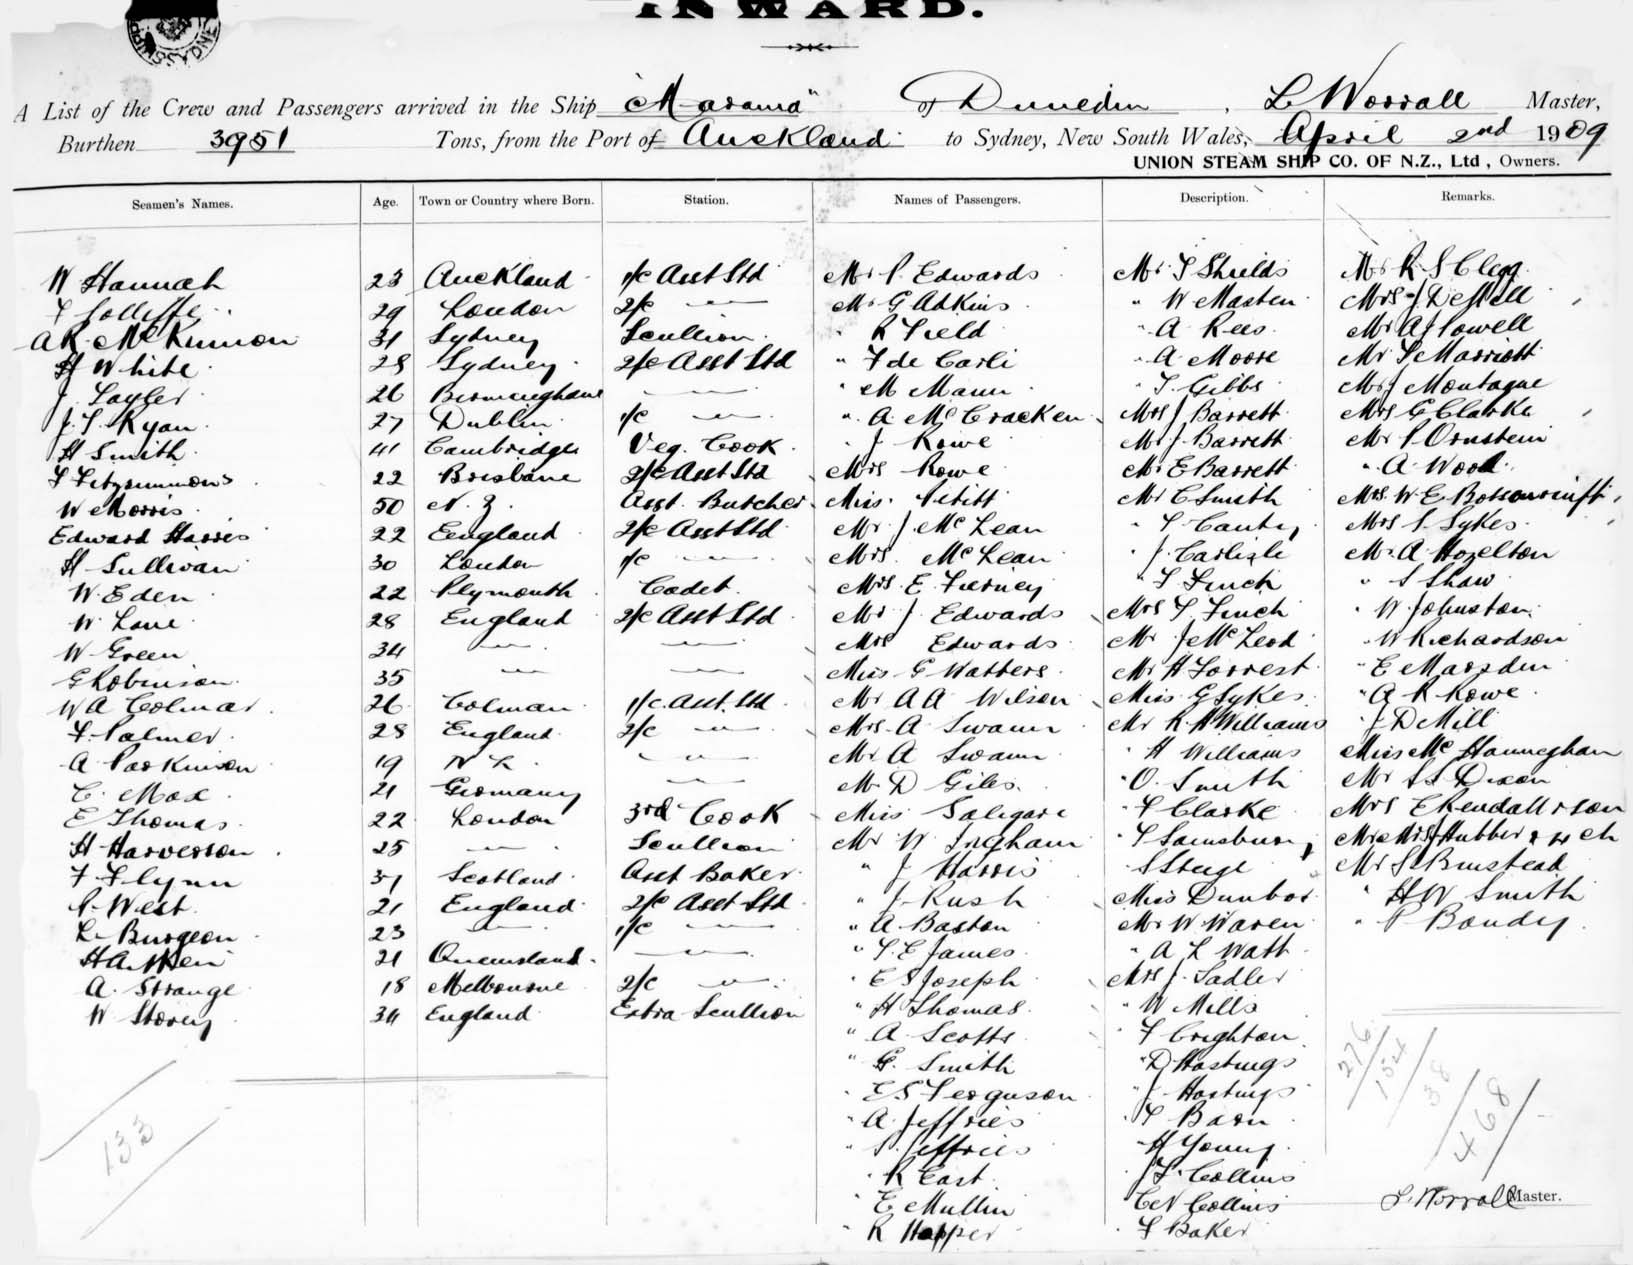 INWARD.
A List of the Crew and Passengers arrived in the Ship "Marama" of Dunedin, L Worrall Master,
Burthen 3951 Tons, from the Port of Auckland to Sydney, New South Wales, April 2nd 1909
UNION STEAM SHIP CO. OF N.Z., Ltd, Owners.
Seamen's Names. Age. Town or Country where Born. Station. Names of Passengers. Description. Remarks.
W Hannah 23 Auckland 1/c Asst Std Mr P. Edwards Mr T Shields Mr R S Clegg
F Jolliffe 29 London 2/c " Mr G Adkins " W Masten Mrs J
A R McKinnon 31 Sydney Scullion " R Field " A Rees Mr A J Powell
H White 28 Sydney 2/c Asst Std " F de Carli " A Moore Mr Marriott
J. Sayler 26 Birmingham " " M Mann " T. Gibbs Mr J Montague
J. T. Ryan 27 Dublin 1/c " " A McCracken Mrs J Barrett Mrs G Clarke
H Smith 41 Cambridge Veg. Cook " J Rowe Mr J. Barrett Mr P. Ornstein
T Fitzsimmons 22 Brisbane 2/c Asst Std Mrs Rowe Mr E Barrett " A Wood
W Morris 50 N. Z. Asst. Butcher Miss Mr C Smith Mrs W E
Edward Harris 22 England 2/c Asst Std Mr J McLean " T Canty Mrs S. Sykes
H Sullivan 30 London 1/c " Mrs McLean " J Carlisle Mr A Hazelton
W. Eden 22 Plymouth Cadet Mrs E Tierney " T Finch " S Shaw
W Lane 28 England 2/c Asst Std Mr J. Edwards Mrs T Finch " W Johnston
W Green 34 " " Mrs Edwards Mr J McLeod " W Richardson
G Robinson 35 " " Miss G Watters Mr H Forrest " E Marsden
W A Colmar 26 Colman 1/c Asst. Std Mr A A Wilson Miss G Sykes " A R Rowe
F. Palmer 28 England 2/c " Mrs A Swann Mr R H Williams " J D Mill
A Parkinson 19 N Z " Mr A Swann " H Williams Miss Mc Hanneghan
C. Max 21 Germany " Mr D Giles " O. Smith Mr Dixon
E Thomas 22 London 3rd Cook Miss " F Clarke Mrs E Kendall & son
H Harverson 25 " Scullion Mr W Ingham " T Sainsbury Mr & Mrs Hubber & 4 ch
F Flynn 31 Scotland Asst Baker " J Harris " S Steege Mr S Binstead
P. West 21 England 2/c Asst Std " J. Rush Miss Dunbar " H W Smith
L. Burgeon 23 " 1/c " " A. Baxton Mr W Waren " P Bandy
H Aitken 21 Queensland " " T. E James " A L Watt
A. Strange 18 Melbourne 2/c " " E S Joseph Mrs J. Sadler
W Storey 34 England Extra Scullion " H Thomas " W Mills
" A Scotts " F Crighton
" G. Smith " D Hastings
" E S Ferguson " J Hastings
" A Jeffries " T Barn
" S. Jeffries " H Young
" R East " J T. Collins
" E Mullin " C N Collins
" R Happer " F Baker
133
276 154 38
468
L. Worrall Master.